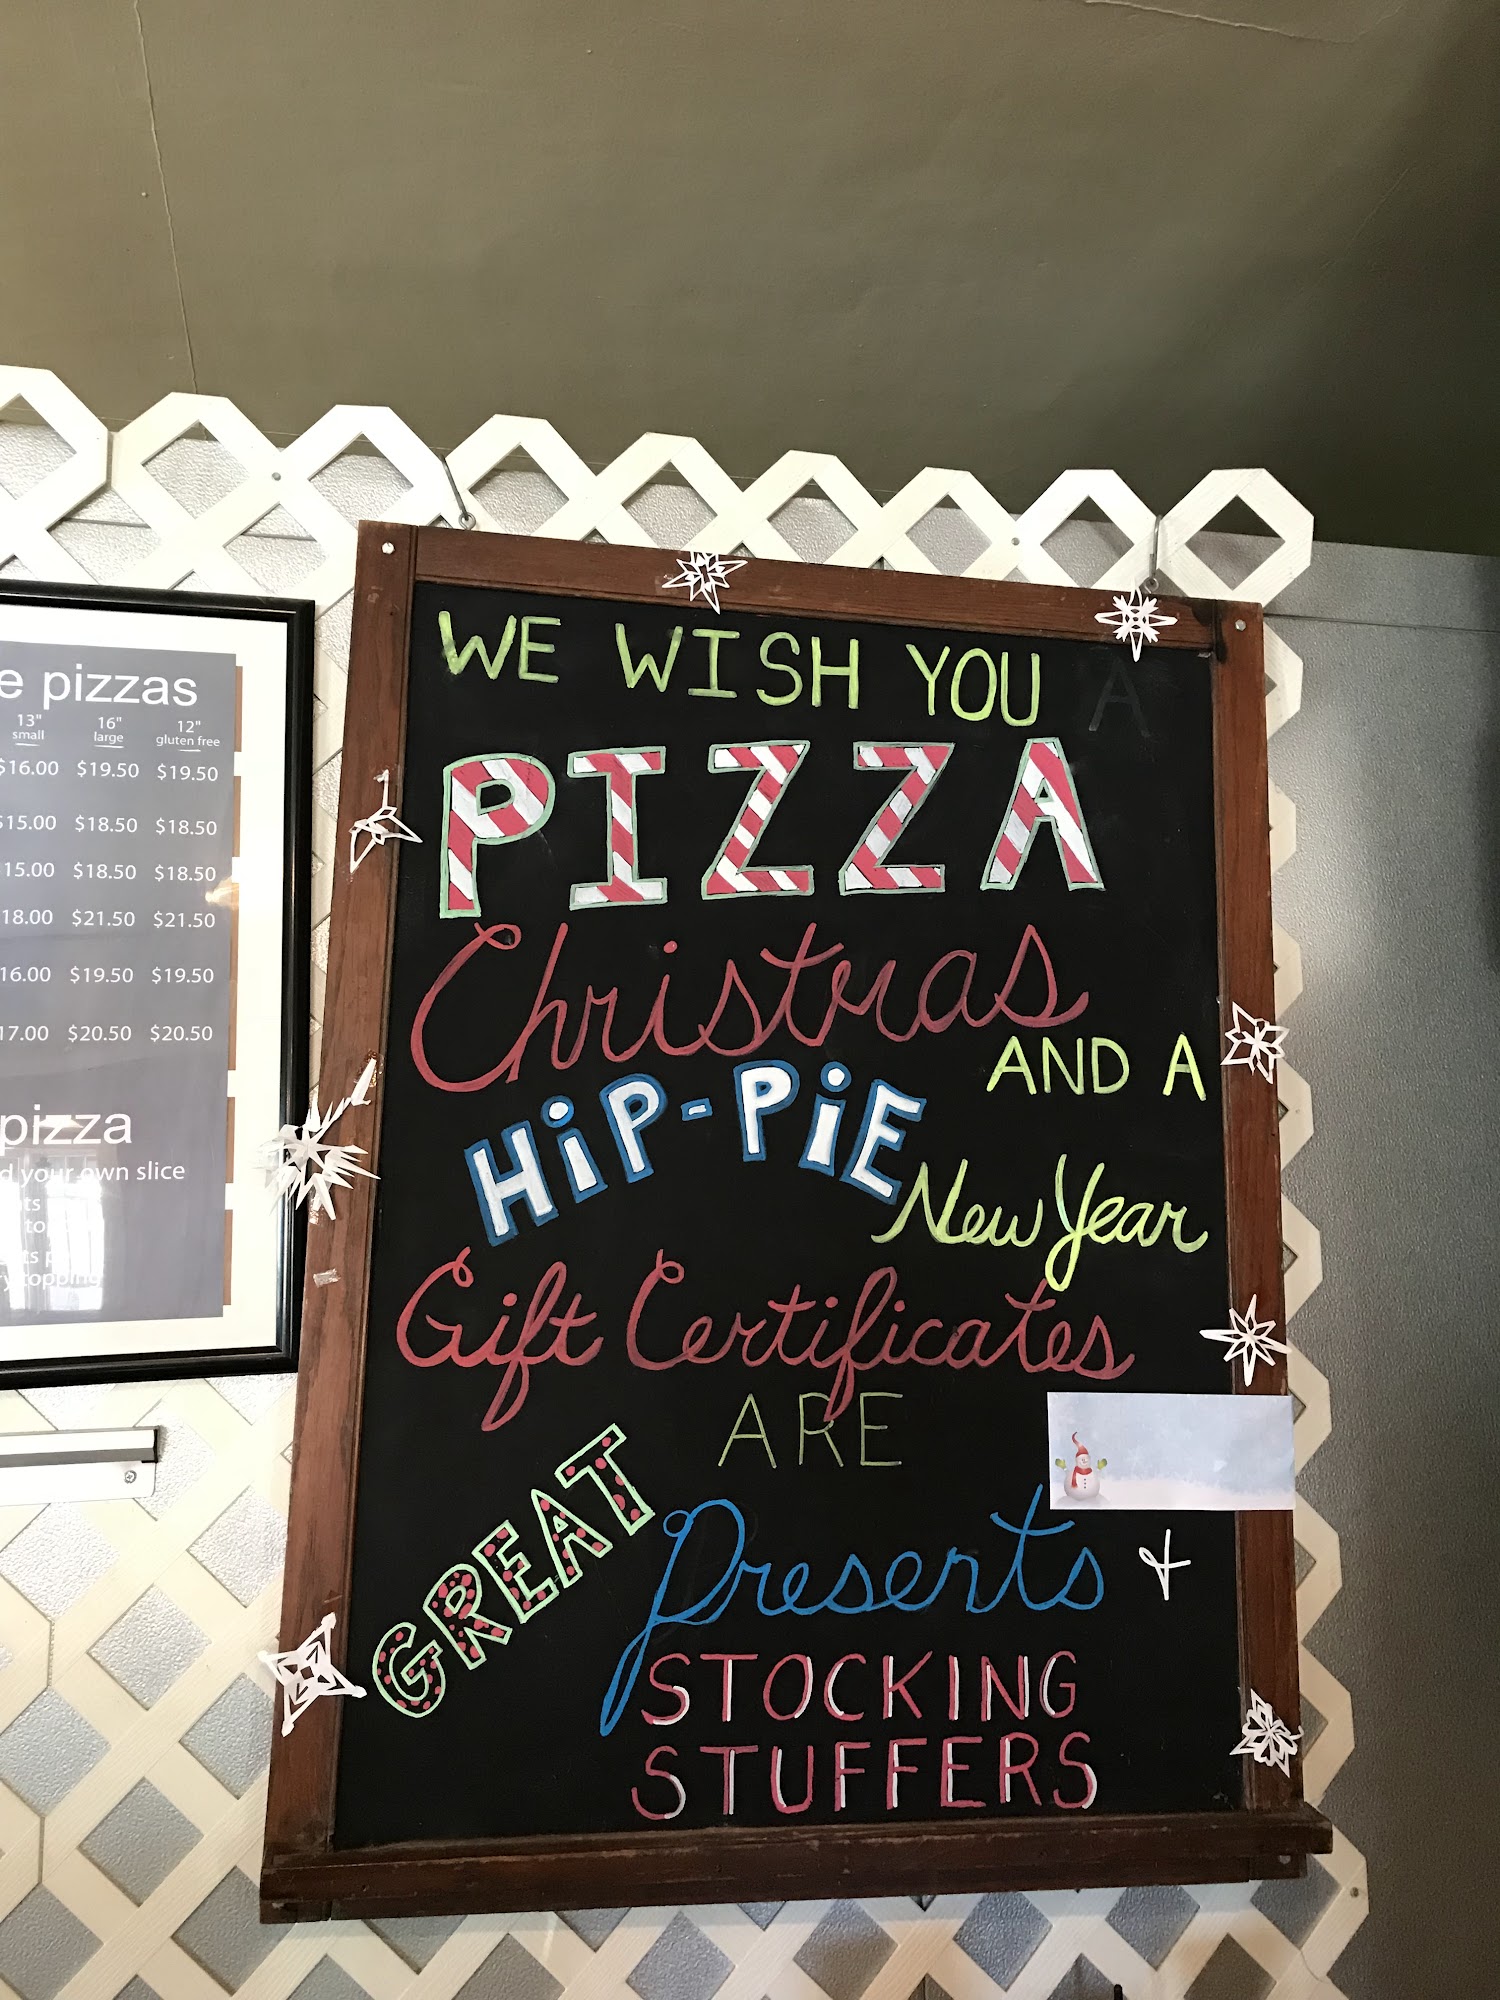 WE WISH YOU A
PIZZA
Christmas
AND A
HiP-PiE
New Year
Gift Certificates
ARE
GREAT
Presents &
STOCKING
STUFFERS
e pizzas
13" 16" 12"
small large gluten free
$16.00 $19.50 $19.50
$15.00 $18.50 $18.50
15.00 $18.50 $18.50
18.00 $21.50 $21.50
16.00 $19.50 $19.50
17.00 $20.50 $20.50
pizza
d your own slice
topping